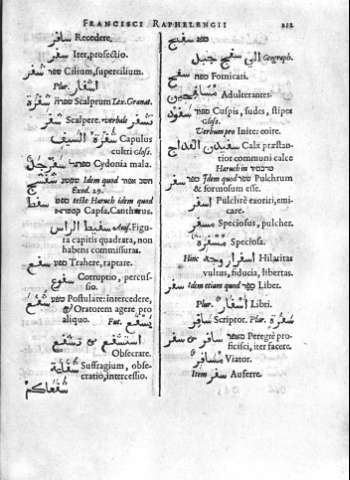 FRANCISCI RAPHELENGII
212
سافر Recedere.
سفر Iter, profectio.
شفر Cilium, supercilium.
Plur. اشفار
شفرة Scalprum Lex. Granat.
Scalpere. verbale
شفرة السيف Capulus
cultri gloss.
سفرجل Cydonia mala.
Idem quod
Exod. 29.
سفط teste Haruch idem quod
Capsa, Cantharus.
سفيط الراس Figu-
ra capitis quadrata, non
habens commissuras.
سفع Trahere, raptare.
سفع Corruptio, percus-
sio.
شفع Postulare: intercedere,
Oratorem agere pro
aliquo. Fut. يشفع
استشفع
Obsecrare.
Suffragium, obse-
cratio, intercessio.
سفح
الي سفح جبل Geograph.
سفح Fornicari.
مسافحين Adulterantes.
سفود Cuspis, sudes, stipes
Gloss.
Verbum pro Inire: coire.
Calx præstan-
tior communi calce
Haruch in
سفر Idem quod Pulchrum
& formosum esse.
Pulchrè exoriri, emi-
care.
Speciosus, pulcher.
مسفرة Speciosa.
Hinc اسفرار وجه Hilaritas
vultus, fiducia, libertas.
سفر Idem etiam quod ספר Liber.
Plur. اسفار Libri.
سافر Scriptor. Plur. سفرة
سافر و سفر Peregrè pro-
ficisci, iter facere.
مسافر Viator.
Item سفر Auferre.